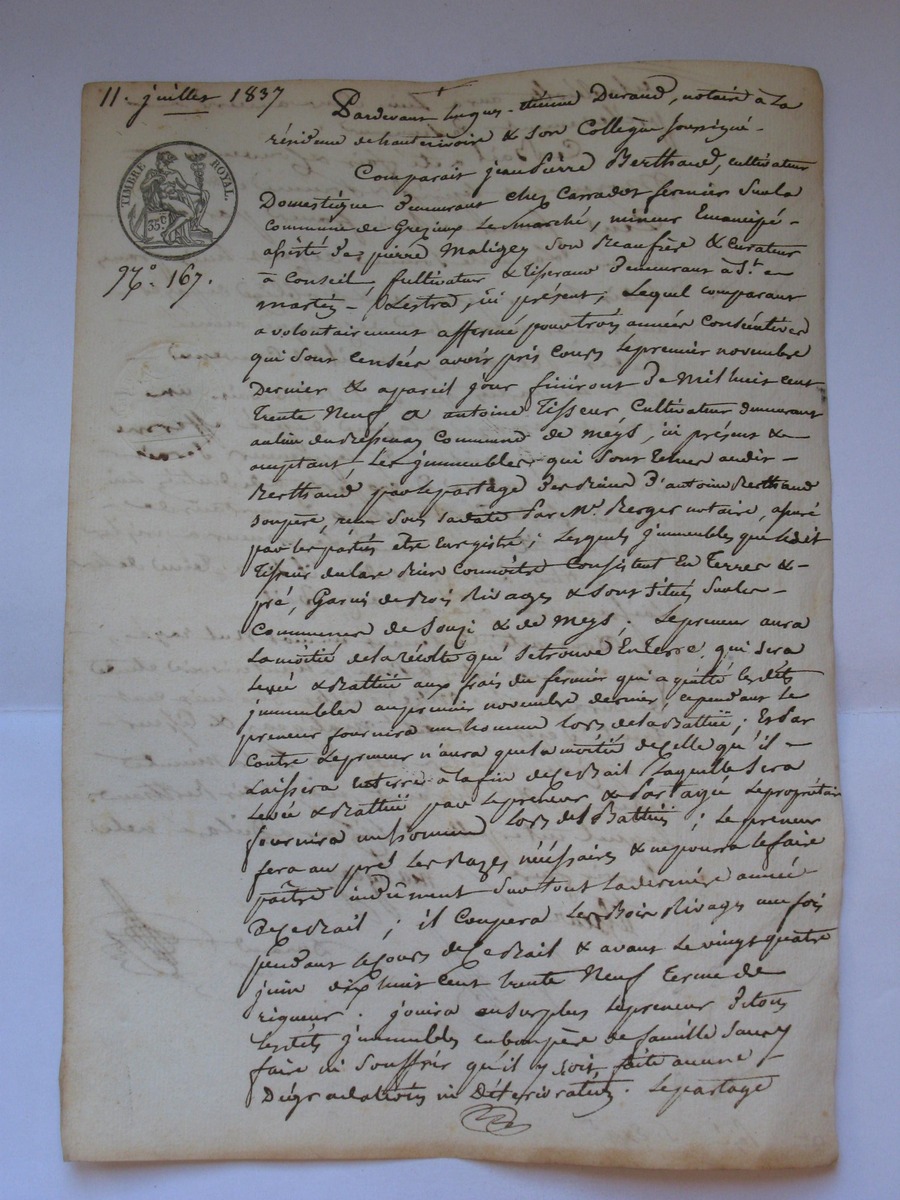 11. juillet 1837
TIMBRE ROYAL
35 c
N°. 167.
Pardevant Étienne Durand, notaire à la
résidence de hauterivoire & son Collègue soussigné.
Comparait jean Pierre Berthaud, cultivateur
Domestique demeurant chez Carradot fermier sur la
Commune de Grezieux Le marché, mineur Emancipé
assisté de pierre Maligey son Beaufrère & Curateur
à Conseil, Cultivateur & tisserand demeurant à St. en
martin Lestrat, ici présent; Lequel comparant
a volontairement affermé pour trois années Consécutives
qui sont Censées avoir pris Cours le premier novembre
Dernier & a pareil jour finiront De Mil huit cent
trente Neuf a antoine Tisseur, Cultivateur demeurant
au lieu du Commune de Meys, ici présent &
acceptant, Les jmmeubles qui sont Echus audit
Berthaud par le partage Des Biens D'antoine Berthaud
son père, reçu sous sa date Par Me. Berger notaire, assuré
par les parties être Enregistré; Lesquels jmmeubles que Ledit
Tisseur déclare Bien Connoître Consistent En Terres &
pré, Garnis de Bois Rivages & sont situés sur les
Communes de Souzi & de Meys. Le preneur aura
La moitié de la récolte qui se trouve En terre, qui sera
Levée & Battüe aux frais du fermier qui a quitté lesdits
jmmeubles au premier novembre dernier, cependant le
preneur fournira un homme lors de la Battüe; Et Par
Contre Le preneur n'aura que la moitié de celle qu'il
Laissera En terre à la fin de ce Bail Laquelle sera
Levée & Battüe par Le preneur & Partagée Le propriétaire
fournira un homme lors de la Battüe; Le preneur
fera au pré Les Razes nécéssaires & ne pourra le faire
paître indûment surtout La dernière année
De ce Bail; il Coupera Les Bois Rivages une fois
pendant le Cours de Ce Bail & avant Le vingt quatre
juin dix huit Cent trente Neuf terme de
rigueur. jouira au surplus Le preneur De tous
lesdits jmmeubles en bon père de famille sans y
faire ni Souffrir qu'il y soit faite aucune
Dégradations ni Détériorations. Le partage